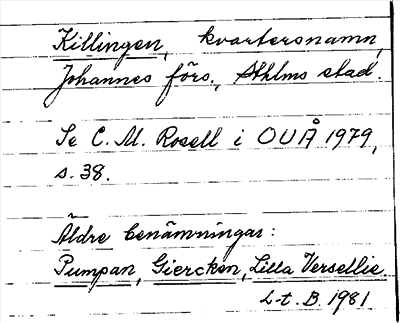 Killingen, kvartersnamn,
Johannes förs., Sthlms stad.
Se C. M. Rosell i OUÅ 1979,
s. 38.
Äldre benämningar:
Pumpan, Giercken, Lilla Versellie.
L-t. B. 1981